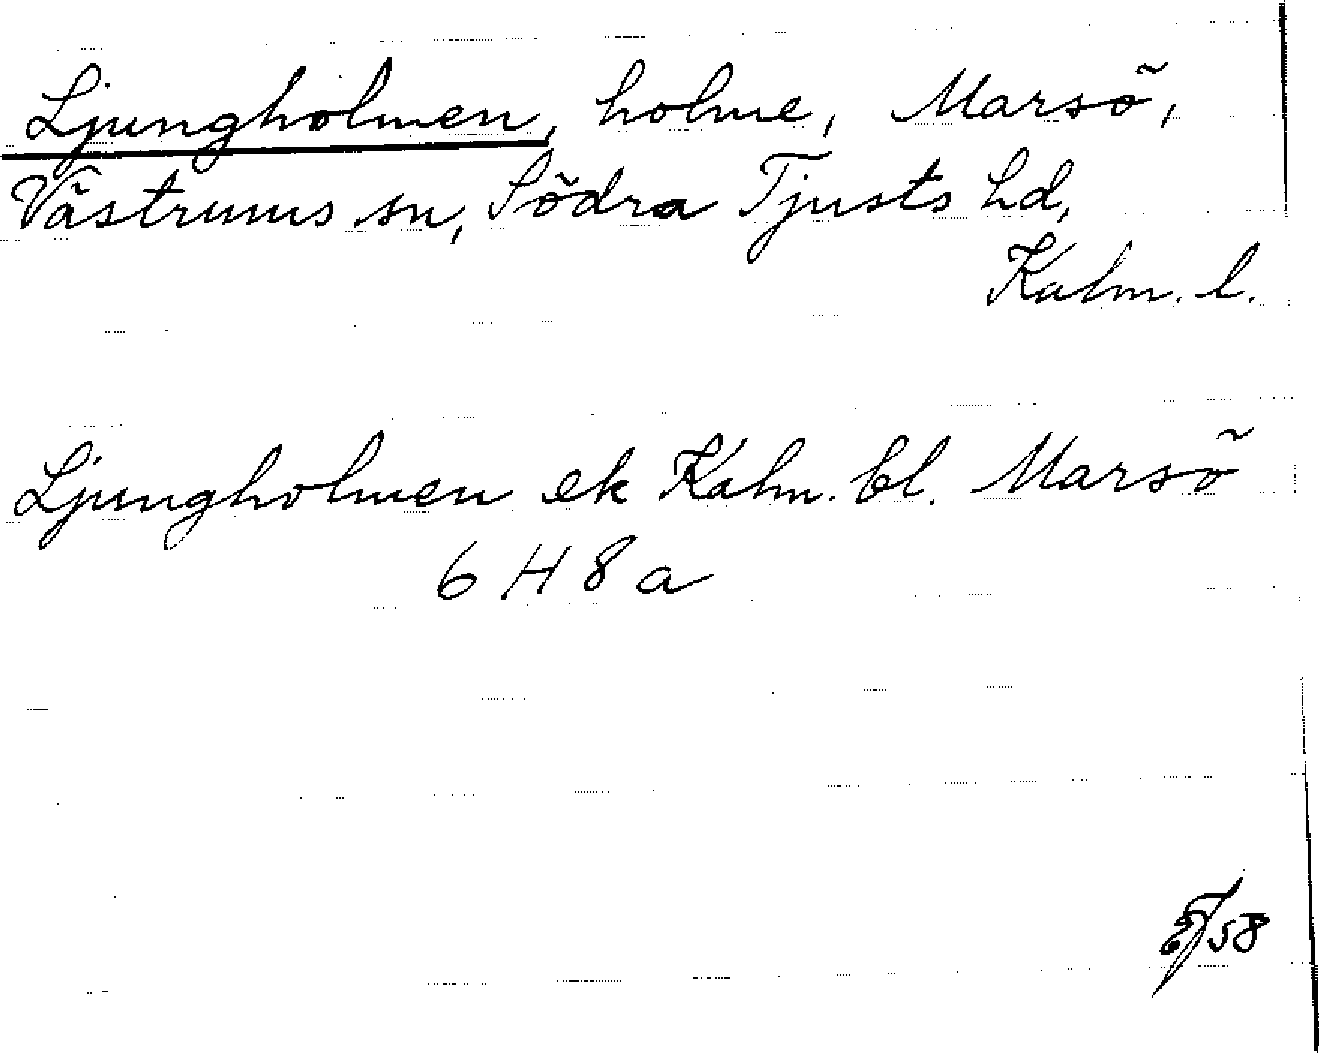 Ljungholmen, holme, Marsö,
Västrums sn, Södra Tjusts hd,
Kalm. l.
Ljungholmen ek Kalm. bl. Marsö
6 H 8 a
58